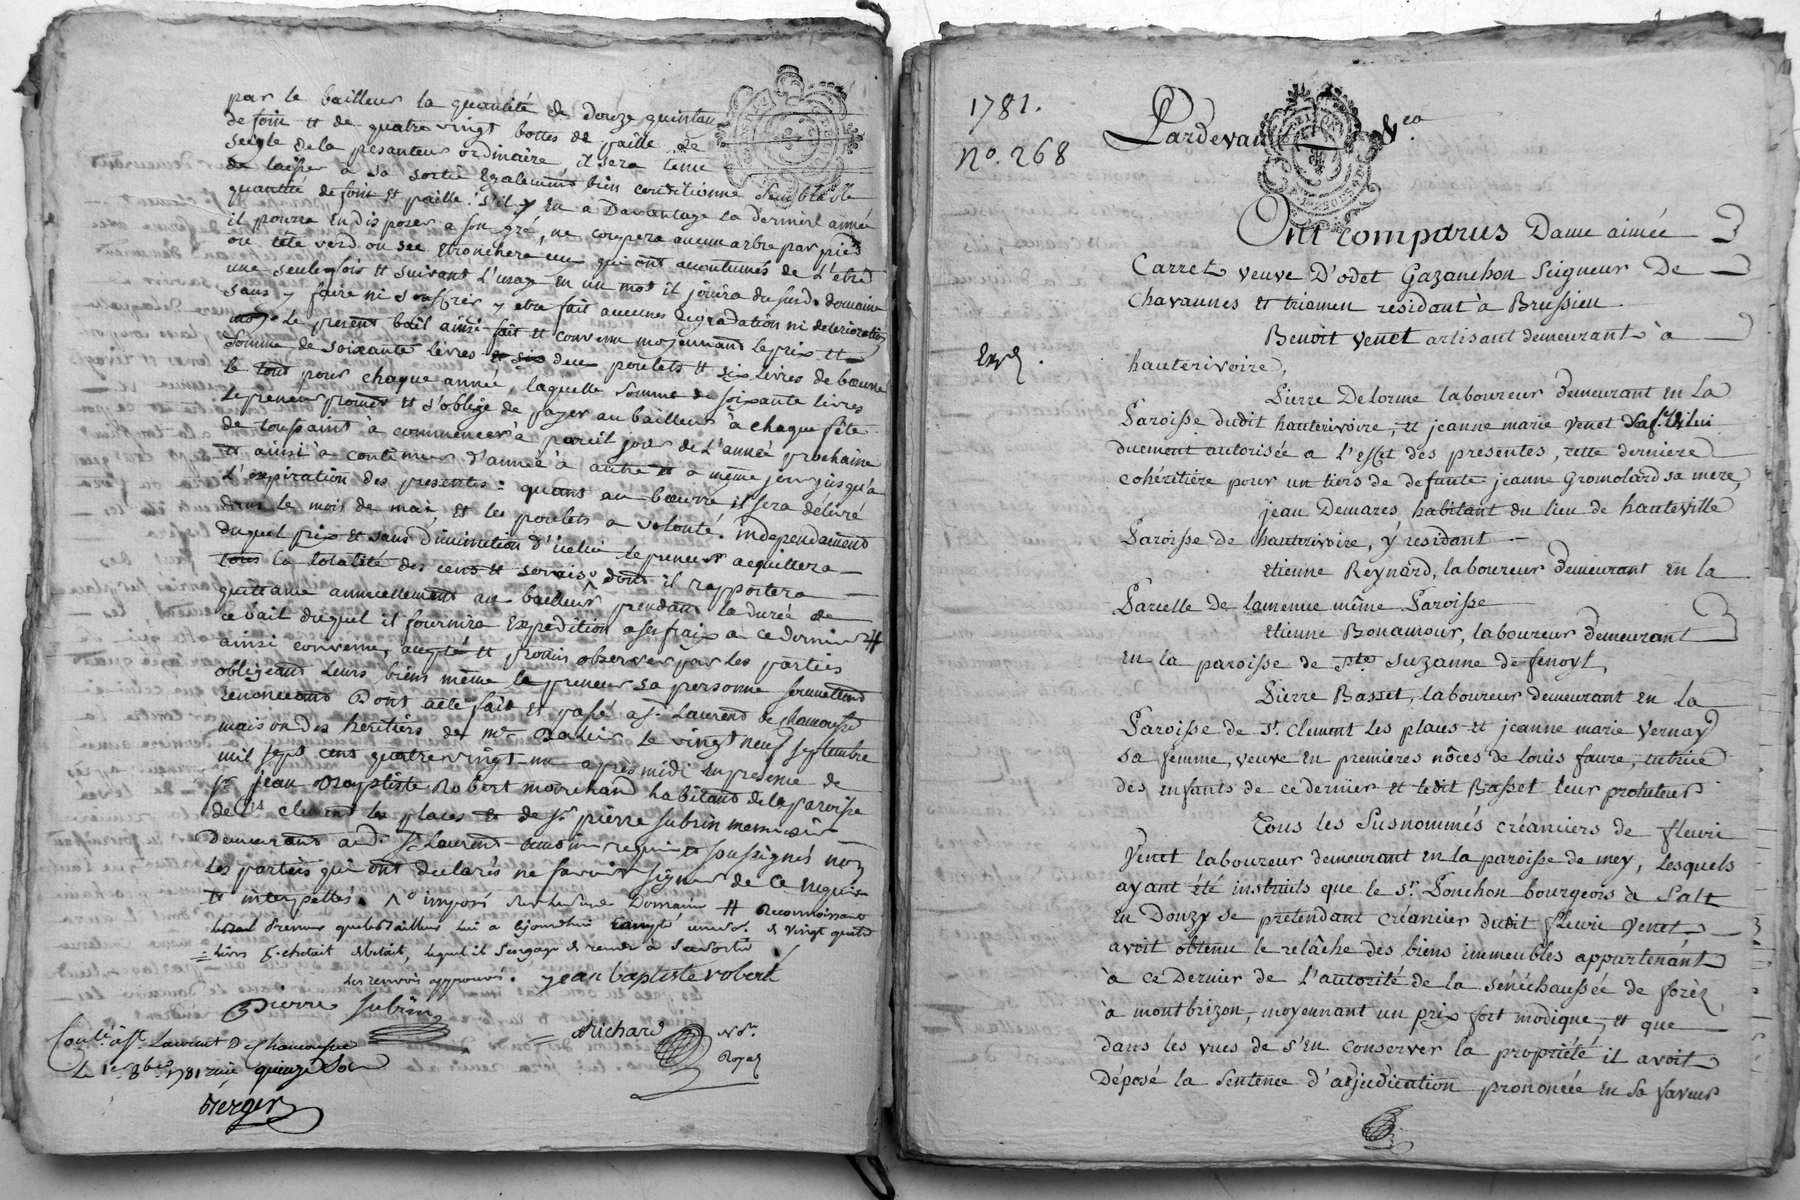 par le bailleur la quantité de douze quintaux
de foin et de quatre vingt bottes de paille de
seigle de la pesanteur ordinaire il sera tenu
de laisser a sa sortie également bien conditionné semblable
quantité de foin et paille. s'il y en a davantage la derniere année
il pourra en disposer a son gré, ne coupera aucun arbre par pied
ou tête verd ou sec ebranchera ceux qui ont accoutumés de l'etre
une seule fois et suivant l'usage en un mot il jouira du susd. domaine
sans y faire ni souffrir y etre fait aucunes degradation ni deterioration
Le present bail ainsi fait et convenu moyennant le prix et
somme de soixante livres deux poulets et six livres de beurre
le tout pour chaque année, laquelle somme de soixante livres
le preneur promet et s'oblige de payer au bailleur à chaque fête
de toussaint à commencer à pareil jour de l'année prochaine
et ainsi à continuer d'année à autre et a même jour jusqu'à
l'expiration des presentes: quant au beurre il sera délivré
dans le mois de mai, et les poulets a volonté. independament
duquel prix et sans diminution d'icelui le preneur acquittera
la totalité des cens et servis dont il rapportera
quittance annuellement au bailleur pendant la durée de
ce bail duquel il fournira expedition a ses fraix a ce dernier #
ainsi convenu, accepté et promis observer par les parties
obligeant leurs biens même le preneur sa personne soumettant
renonceant Dont acte fait et passé a St. Laurent de chamousset
maison des heritiers de me. le vingt neuf septembre
mil sept cent quatre vingt un apres midi en presence de
sr. jean Baptiste Robert marchand habitant de la paroisse
de St. clement les places et de sr. pierre subrin menuisier
demeurant aud. St. Laurent temoins requis et soussignés non
les parties qui ont declarés ne savoir signer de ce enquis
et interpellés. # Reconnoissant
le preneur que le Bailleur lui a ejourdhui vingt quatre
livres lequel il s'engage de rendre à sa sortie
les renvois approuvés. jean baptiste robert
Pierre subrin
Richard no.re
Royal
Con.lé à St. Laurent De Chamousset
Le 1er 8bre 1781 reçu quinze sols
Verger
1781.
No. 268
Pardevant &ca
Ont comparus Dame aimée
Carret veuve D'odet Gazanchon Seigneur De
Chavannes et triamen residant à Brussieu
Benoit Venet artisant demeurant à
Exp.
hauterivoire,
Pierre Delorme laboureur demeurant en la
Paroisse dudit hauterivoire, et jeanne marie venet sa fe. de lui
duement autorisée a l'effet des presentes, cette derniere
cohéritière pour un tiers de defunte jeanne Gromolard sa mere,
jean Demares habitant du lieu de hauteville
Paroisse de hauterivoire, y residant
etienne Reynard, laboureur demeurant en la
Parcelle de lamenue même Paroisse
etienne Bonamour, laboureur demeurant
en la paroisse de Ste. suzanne de fenoyl,
Pierre Basset, laboureur demeurant en la
Paroisse de St. Clement les places et jeanne marie Vernay
sa femme, veuve en premieres nôces de louis faure, tutrice
des enfants de ce dernier et ledit Basset leur protuteur
Tous les susnommés créanciers de fleuri
Venet laboureur demeurant en la paroisse de mey, lesquels
ayant été instruits que le sr. Ponchon bourgeois à Salt
en Donzy se prétendant créancier dudit fleuri Venet
avoit obtenu le relâche des biens immeubles appartenant
à ce Dernier de l'autorité de la sénéchaussée de forêz
à montbrizon, moyennant un prix fort modique, et que
dans les vues de s'en conserver la propriété il avoit
déposé la sentence d'adjudication prononcée en sa faveur